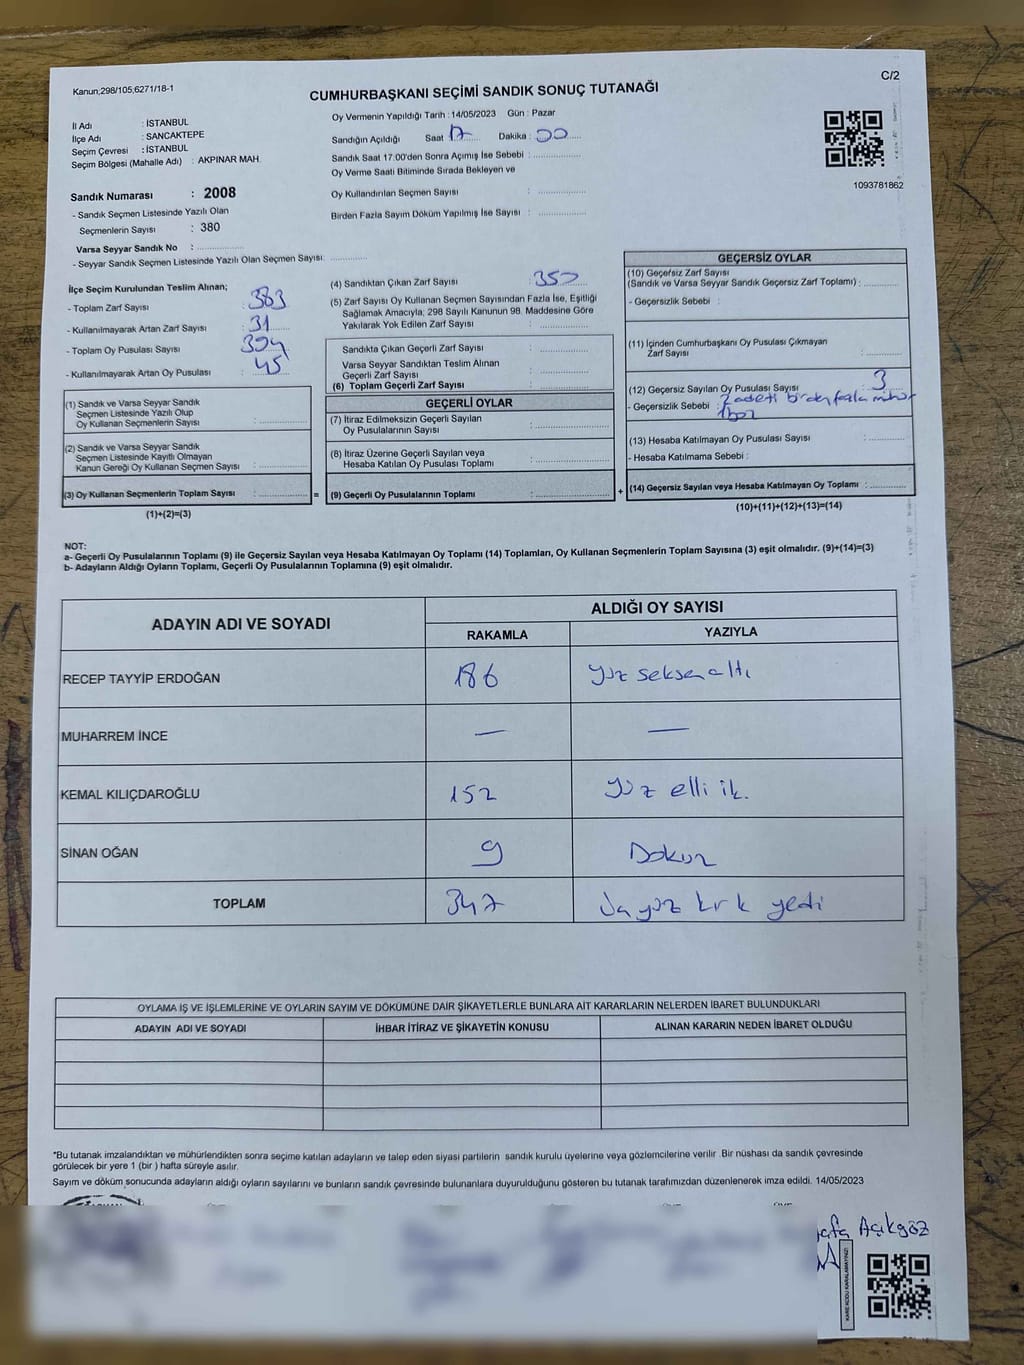 Kanun;298/105;6271/18-1
C/2
CUMHURBAŞKANI SEÇİMİ SANDIK SONUÇ TUTANAĞI
İl Adı : İSTANBUL
İlçe Adı : SANCAKTEPE
Seçim Çevresi : İSTANBUL
Seçim Bölgesi (Mahalle Adı) : AKPINAR MAH.
Sandık Numarası : 2008
- Sandık Seçmen Listesinde Yazılı Olan
Seçmenlerin Sayısı : 380
Varsa Seyyar Sandık No :
- Seyyar Sandık Seçmen Listesinde Yazılı Olan Seçmen Sayısı:
Oy Vermenin Yapıldığı Tarih : 14/05/2023 Gün : Pazar
Sandığın Açıldığı Saat 17 Dakika : 00
Sandık Saat 17:00'den Sonra Açımış İse Sebebi :
Oy Verme Saati Bitiminde Sırada Bekleyen ve
Oy Kullandırılan Seçmen Sayısı :
Birden Fazla Sayım Döküm Yapılmış İse Sayısı :
1093781862
İlçe Seçim Kurulundan Teslim Alınan;
- Toplam Zarf Sayısı : 383
- Kullanılmayarak Artan Zarf Sayısı : 31
- Toplam Oy Pusulası Sayısı : 394
- Kullanılmayarak Artan Oy Pusulası : 45
(1) Sandık ve Varsa Seyyar Sandık
Seçmen Listesinde Yazılı Olup
Oy Kullanan Seçmenlerin Sayısı :
(2) Sandık ve Varsa Seyyar Sandık
Seçmen Listesinde Kayıtlı Olmayan
Kanun Gereği Oy Kullanan Seçmen Sayısı :
(3) Oy Kullanan Seçmenlerin Toplam Sayısı :
(1)+(2)=(3)
=
(4) Sandıktan Çıkan Zarf Sayısı : 350
(5) Zarf Sayısı Oy Kullanan Seçmen Sayısından Fazla İse, Eşitliği
Sağlamak Amacıyla; 298 Sayılı Kanunun 98. Maddesine Göre
Yakılarak Yok Edilen Zarf Sayısı :
Sandıkta Çıkan Geçerli Zarf Sayısı :
Varsa Seyyar Sandıktan Teslim Alınan
Geçerli Zarf Sayısı :
(6) Toplam Geçerli Zarf Sayısı :
GEÇERLİ OYLAR
(7) İtiraz Edilmeksizin Geçerli Sayılan
Oy Pusulalarının Sayısı :
(8) İtiraz Üzerine Geçerli Sayılan veya
Hesaba Katılan Oy Pusulası Toplamı :
(9) Geçerli Oy Pusulalarının Toplamı :
+
GEÇERSİZ OYLAR
(10) Geçersiz Zarf Sayısı
(Sandık ve Varsa Seyyar Sandık Geçersiz Zarf Toplamı) :
- Geçersizlik Sebebi :
(11) İçinden Cumhurbaşkanı Oy Pusulası Çıkmayan
Zarf Sayısı :
(12) Geçersiz Sayılan Oy Pusulası Sayısı : 3
- Geçersizlik Sebebi : 2 adeti birden fazla mühür
1 boz
(13) Hesaba Katılmayan Oy Pusulası Sayısı :
- Hesaba Katılmama Sebebi :
(14) Geçersiz Sayılan veya Hesaba Katılmayan Oy Toplamı :
(10)+(11)+(12)+(13)=(14)
NOT:
a- Geçerli Oy Pusulalarının Toplamı (9) ile Geçersiz Sayılan veya Hesaba Katılmayan Oy Toplamı (14) Toplamları, Oy Kullanan Seçmenlerin Toplam Sayısına (3) eşit olmalıdır. (9)+(14)=(3)
b- Adayların Aldığı Oyların Toplamı, Geçerli Oy Pusulalarının Toplamına (9) eşit olmalıdır.
ADAYIN ADI VE SOYADI ALDIĞI OY SAYISI
RAKAMLA YAZIYLA
RECEP TAYYİP ERDOĞAN 186 yüz seksen altı
MUHARREM İNCE — —
KEMAL KILIÇDAROĞLU 152 yüz elli ik.
SİNAN OĞAN 9 Dokuz
TOPLAM 347 üç yüz kırk yedi
OYLAMA İŞ VE İŞLEMLERİNE VE OYLARIN SAYIM VE DÖKÜMÜNE DAİR ŞİKAYETLERLE BUNLARA AİT KARARLARIN NELERDEN İBARET BULUNDUKLARI
ADAYIN ADI VE SOYADI İHBAR İTİRAZ VE ŞİKAYETİN KONUSU ALINAN KARARIN NEDEN İBARET OLDUĞU
*Bu tutanak imzalandıktan ve mühürlendikten sonra seçime katılan adayların ve talep eden siyasi partilerin sandık kurulu üyelerine veya gözlemcilerine verilir .Bir nüshası da sandık çevresinde
görülecek bir yere 1 (bir ) hafta süreyle asılır.
Sayım ve döküm sonucunda adayların aldığı oyların sayılarını ve bunların sandık çevresinde bulunanlara duyurulduğunu gösteren bu tutanak tarafımızdan düzenlenerek imza edildi. 14/05/2023
Açıkgöz
KARE KODU KARALAMAYINIZ!